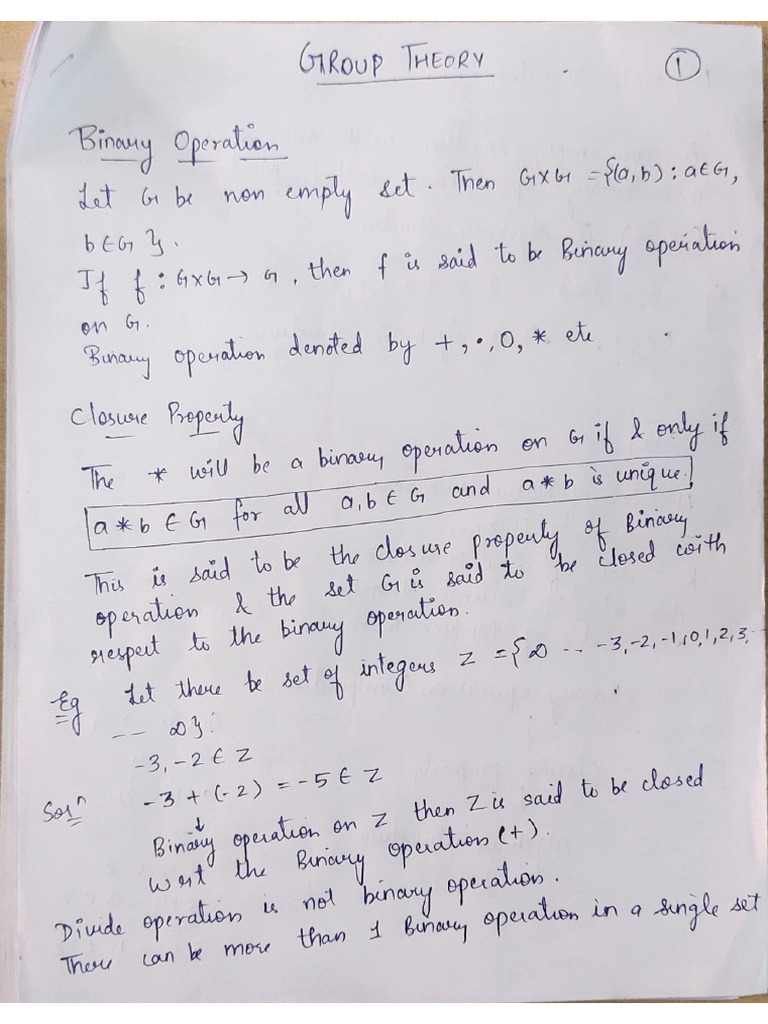 GROUP THEORY
1
Binary Operation
Let G be non empty set. Then G×G = {(a,b) : a∈G,
b∈G }.
If f : G×G → G, then f is said to be Binary operation
on G.
Binary operation denoted by +, •, O, * etc
Closure Property
The * will be a binary operation on G if & only if
a * b ∈ G for all a, b ∈ G and a * b is unique.
This is said to be the closure property of Binary
operation & the set G is said to be closed with
respect to the binary operation.
Eg Let there be set of integers Z = {∞ --- -3,-2,-1,0,1,2,3,-
-- ∞}.
-3, -2 ∈ Z
Solⁿ -3 + (-2) = -5 ∈ Z
↓
Binary operation on Z then Z is said to be closed
wrt the Binary operation (+).
Divide operation is not binary operation.
There can be more than 1 Binary operation in a single set